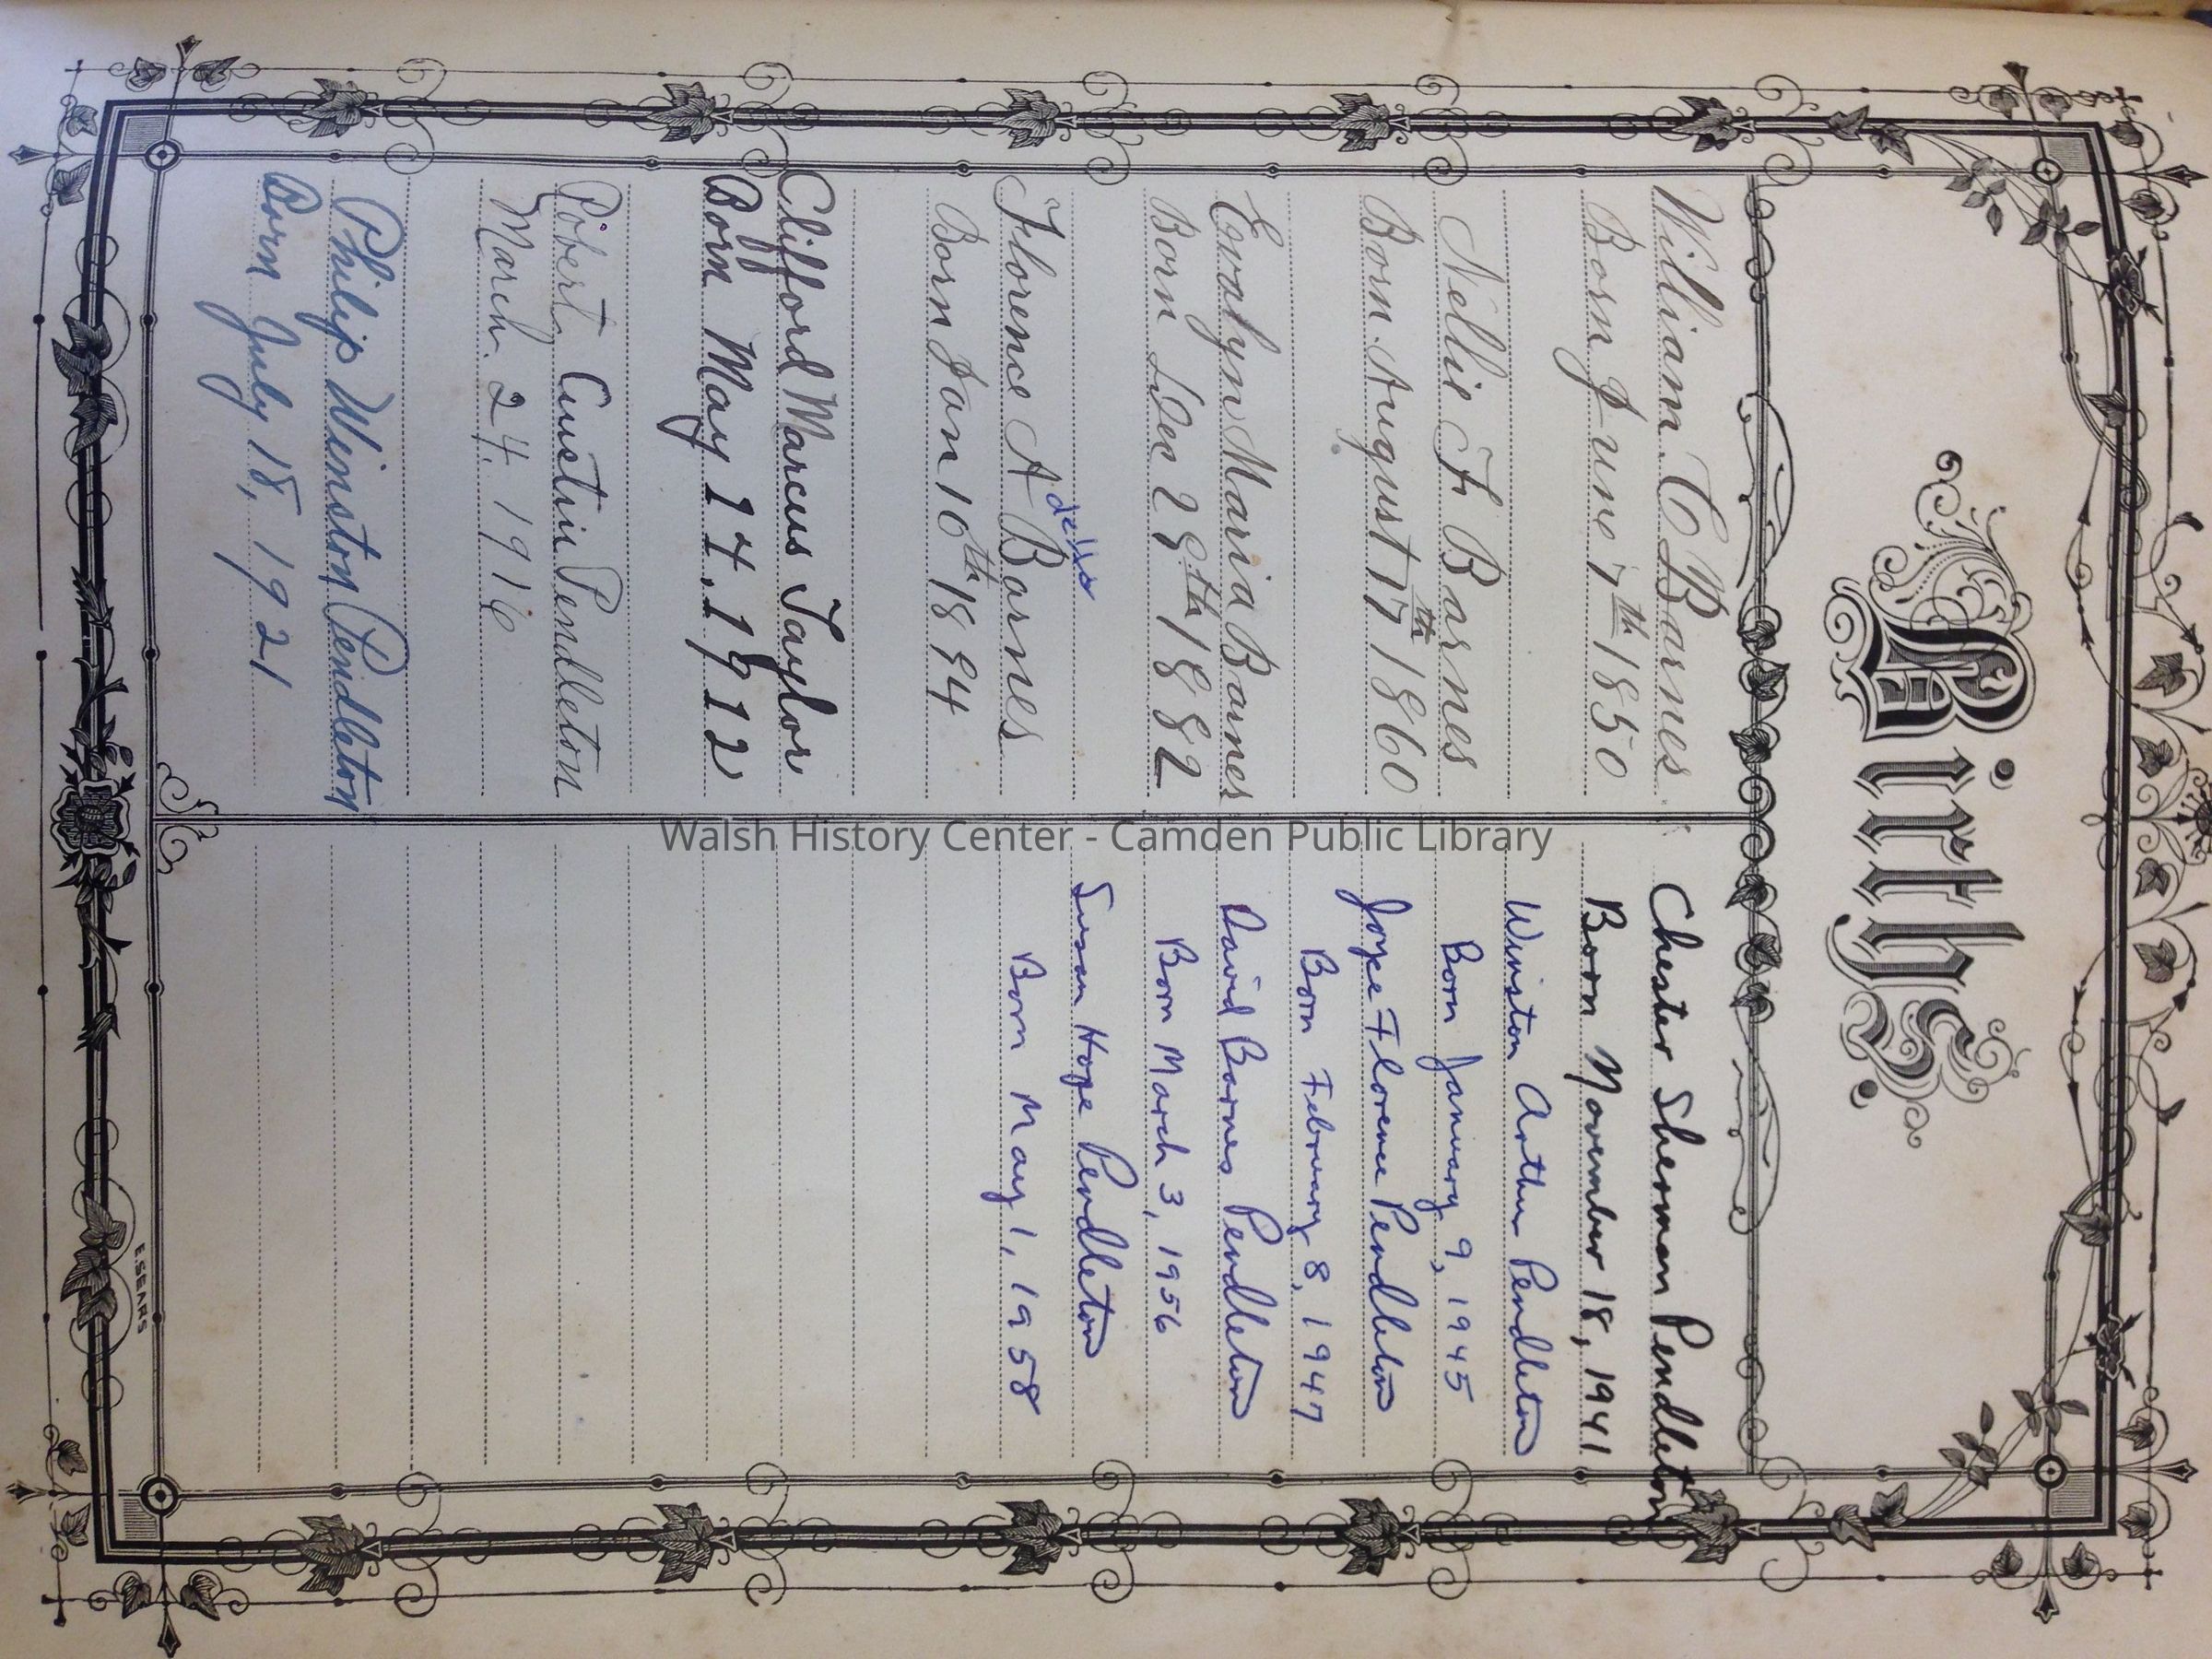 Births.
William. C Barnes
Born June 7th 1850
Nellie F. Barnes
Born. August 17th 1860
Evalyn Maria Barnes
Born Dec 29th 1882
della
Florence A Barnes
Born Jan 10th 1894
Clifford Marcus Taylor
Born May 14. 1912
Robert Austin Pendleton
March. 24. 1916
Philip Winston Pendleton
Born July 18, 1921
Chester Sherman Pendleton
Born November 18, 1941
Winston Arthur Pendleton
Born January 9, 1945
Joyce Florence Pendleton
Born February 8, 1947
David Barnes Pendleton
Born March 3, 1956
Susan Hope Pendleton
Born May 1, 1958
E. SEARS
Walsh History Center - Camden Public Library